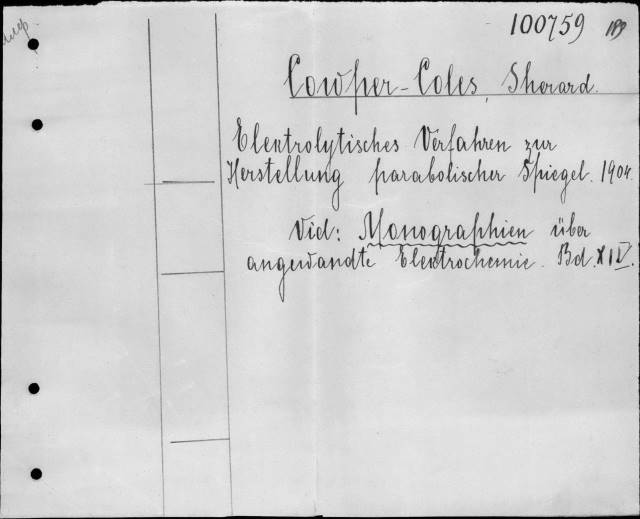 100759 189
Cowper-Coles, Sherard.
Elektrolytisches Verfahren zur
Herstellung parabolischer Spiegel. 1904.
Vid: Monographien über
angewandte Elektrochemie. Bd. XIV.